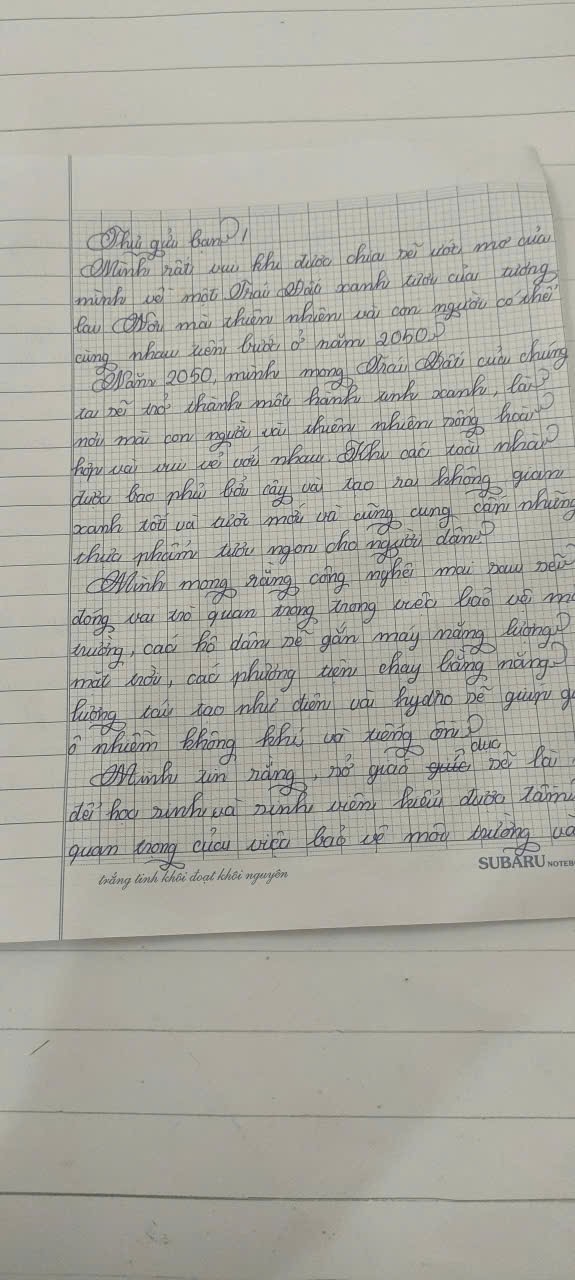 Thư gửi bạn!
Mình rất vui khi được chia sẻ ước mơ của
mình về một Trái Đất xanh tươi của tương
lai. Nơi mà thiên nhiên và con người có thể
cùng nhau tiến bước ở năm 2050.
Năm 2050, mình mong Trái Đất của chúng
ta sẽ trở thành một hành tinh xanh, là
nơi mà con người và thiên nhiên sống hoà
hợp và vui vẻ với nhau. Khi các toà nhà
được bao phủ bởi cây và tạo ra không gian
xanh tốt và tươi mới và cũng cung cấp những
thực phẩm tươi ngon cho người dân.
Mình mong rằng công nghệ mai sau sẽ
đóng vai trò quan trọng trong việc bảo vệ mô
trường, các hộ dân sẽ gắn máy năng lượng
mặt trời, các phương tiện chạy bằng năng
lượng tái tạo như điện và hydro sẽ giúp g
ô nhiễm không khí và tiếng ồn.
Mình tin rằng, sở giáo dục sẽ là
để học sinh và sinh viên hiểu được tầm
quan trọng của việc bảo vệ môi trường và
trắng tinh khôi đoạt khôi nguyên
SUBARU NOTEB